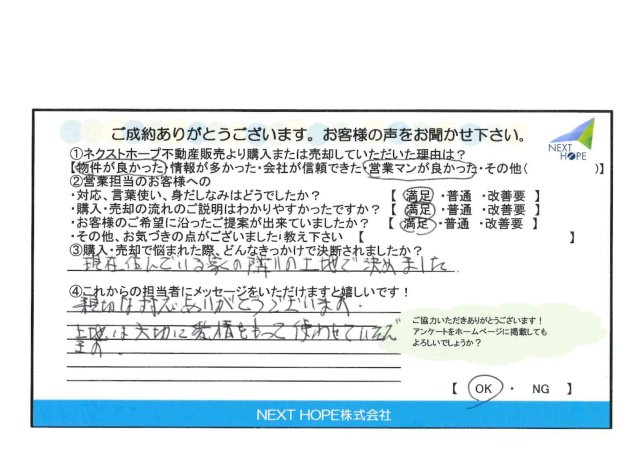 ご成約ありがとうございます。お客様の声をお聞かせ下さい。
NEXT HOPE
①ネクストホープ不動産販売より購入または売却していただいた理由は？
【物件が良かった・情報が多かった・会社が信頼できた・営業マンが良かった・その他( )】
②営業担当のお客様への
・対応、言葉使い、身だしなみはどうでしたか？ 【 満足 ・普通 ・改善要 】
・購入・売却の流れのご説明はわかりやすかったですか？ 【 満足 ・普通 ・改善要 】
・お客様のご希望に沿ったご提案が出来ていましたか？ 【 満足 ・普通 ・改善要 】
・その他、お気づきの点がございました!教え下さい 【 】
③購入・売却で悩まれた際、どんなきっかけで決断されましたか？
現在住んでいる家の隣りの土地で決めました
④これからの担当者にメッセージをいただけますと嬉しいです！
親切な対応ありがとうございます.
土地は大切に愛情をもって使わせていただ
きます.
ご協力いただきありがとうございます！
アンケートをホームページに掲載しても
よろしいでしょうか？
【 OK ・ NG 】
NEXT HOPE株式会社